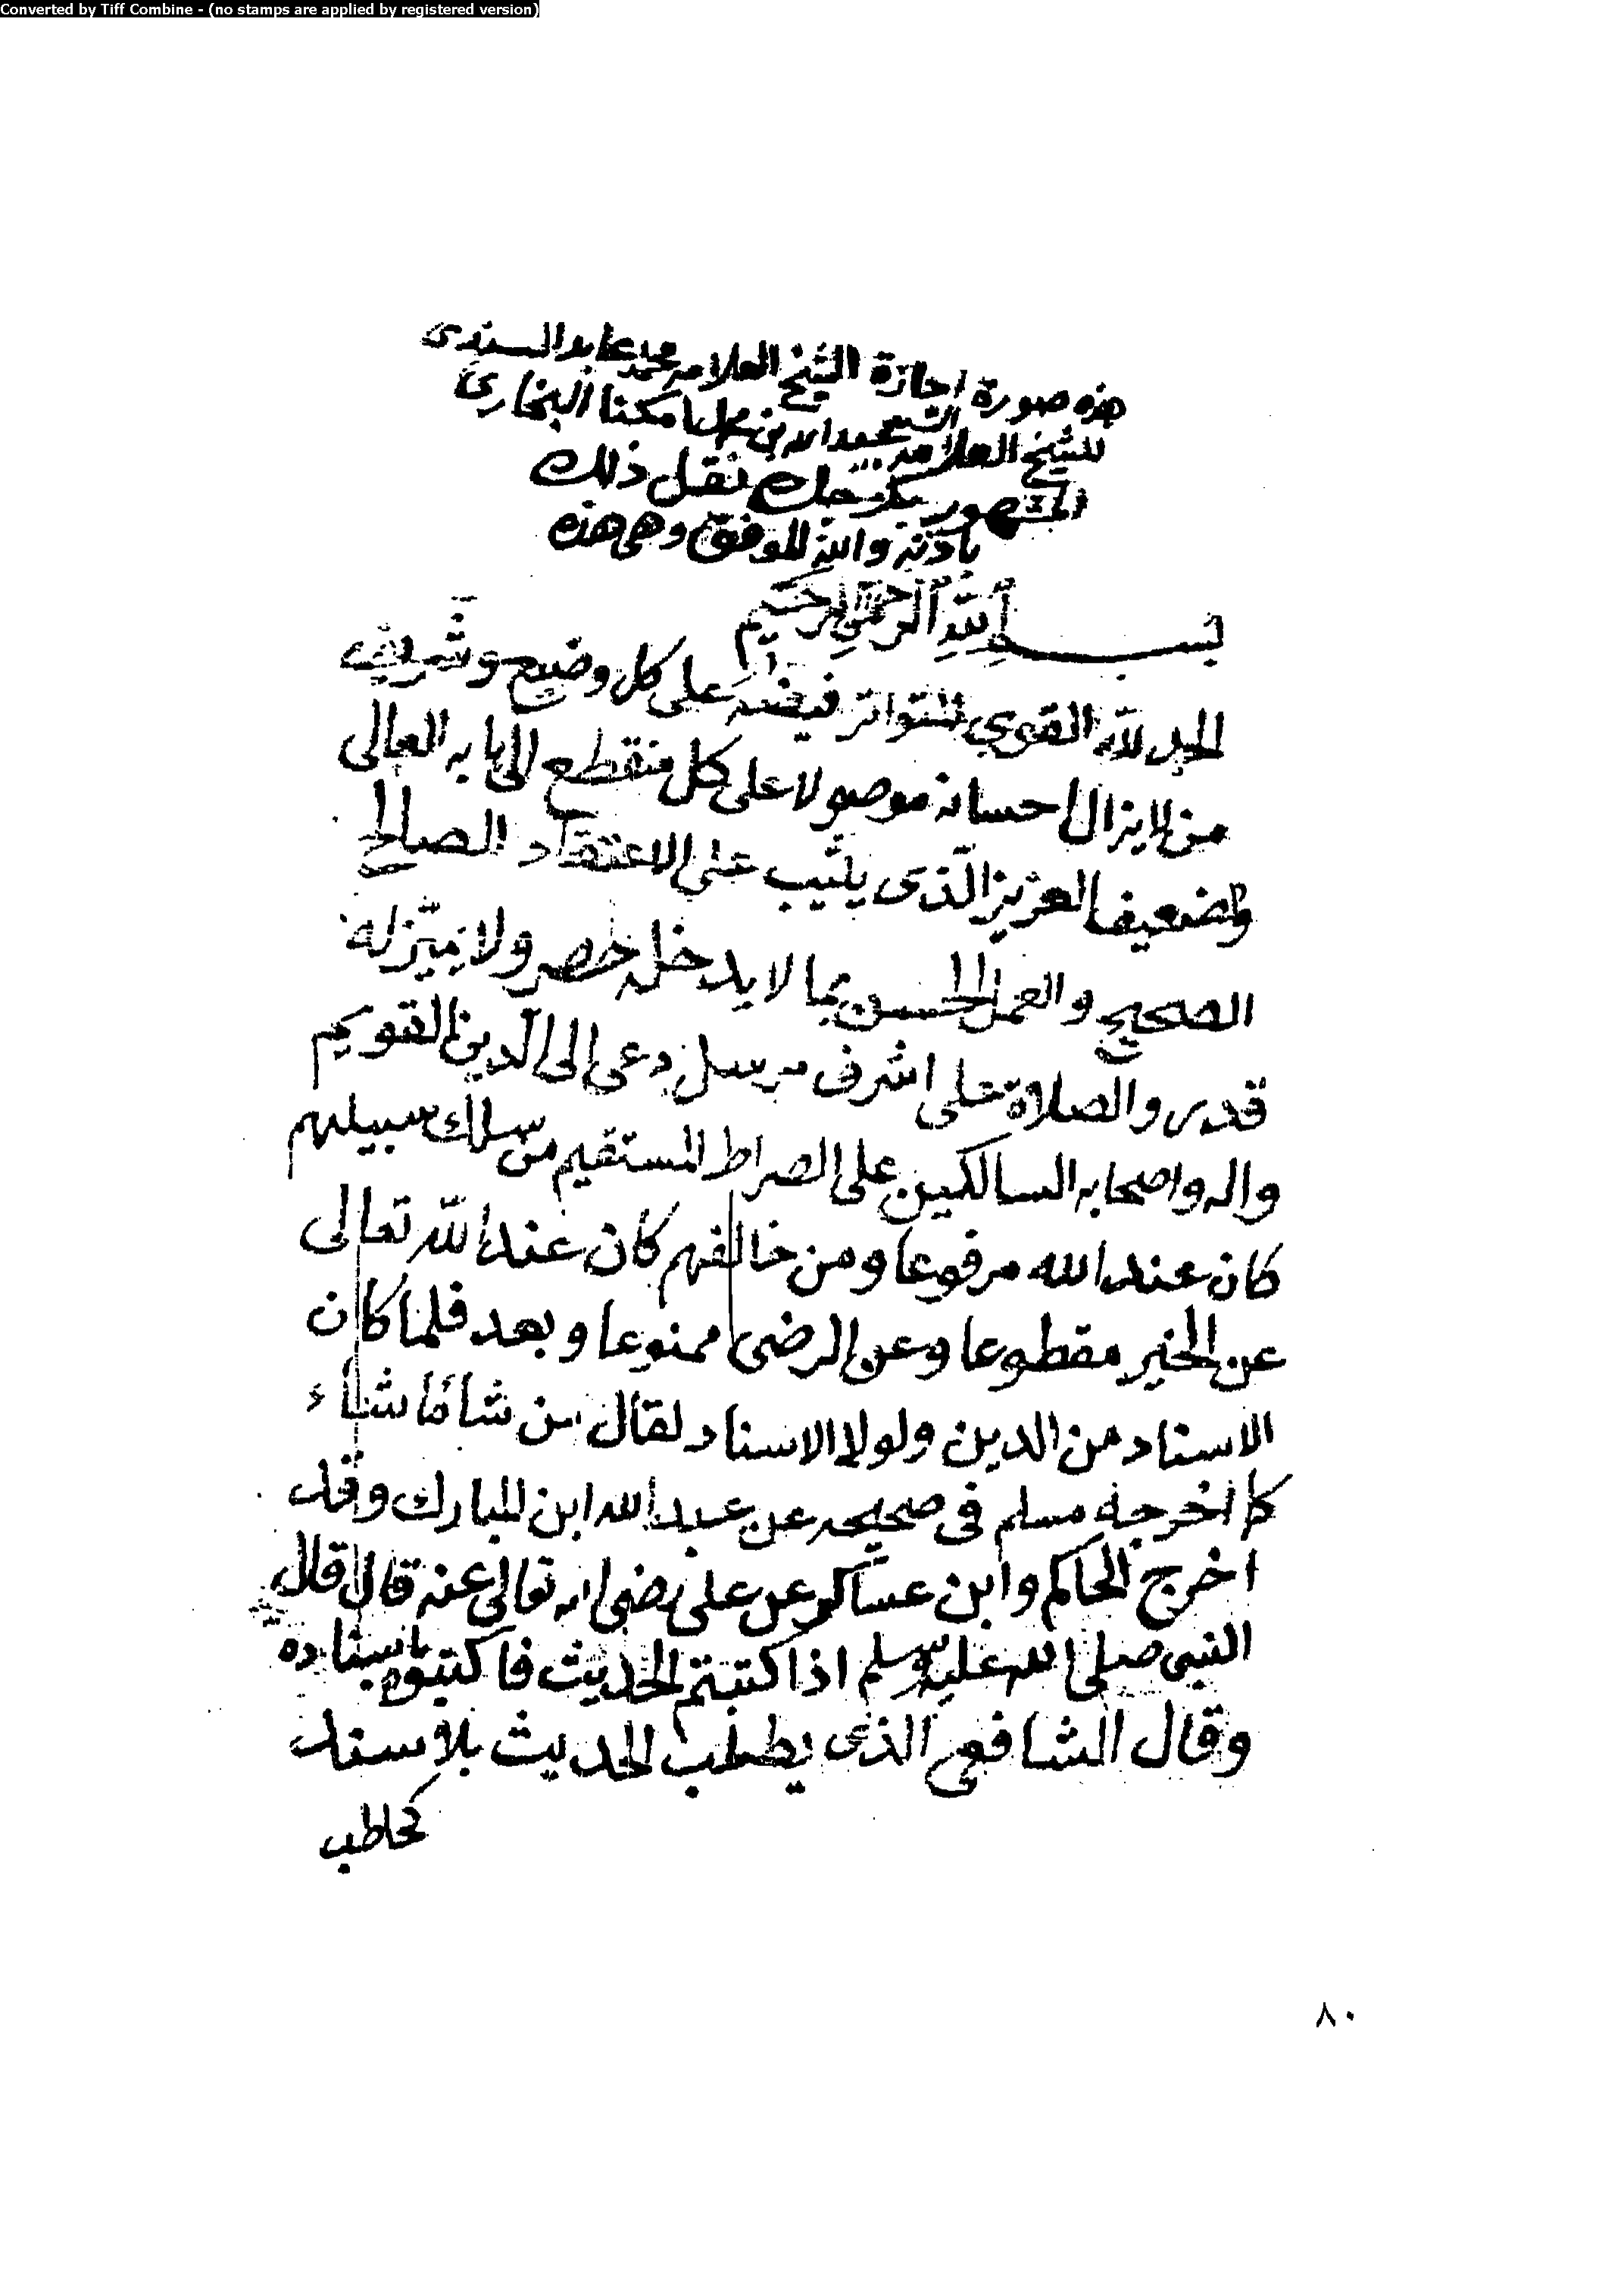 Converted by Tiff Combine - (no stamps are applied by registered version)
هذه صورة اجازة الشيخ العلامه محمد عابد السندى
للشيخ العلامه الشيخ عبد الله بن محمد البخاري
المشهور نقل ذلك
باذنه والله الموفق وهي هذه
بسم الله الرحمن الرحيم
الحمد لله القوي المتواتر فيضه على كل وضيع وشريف
من لا يزال احسانه موصولا على كل منقطع الى بابه العالى
وضعيف العزيز الذى يثيب على الاعتقاد الصالح
الصحيح والعمل الحسن بما لا يدخله حصر ولا يميز له
قدر والصلاة على اشرف مرسل دعى الى الدين القويم
واله واصحابه السالكين على الصراط المستقيم من سلك سبيلهم
كان عند الله مرفوعا ومن خالفهم كان عند الله تعالى
عن الخير مقطوعا وعن الرضى ممنوعا وبعد فلما كان
الاسناد من الدين ولولا الاسناد لقال من شا ما شاء
كما اخرجه مسلم فى صحيحه عن عبد الله ابن المبارك وقد
اخرج الحاكم وابن عساكر عن على رضى الله تعالى عنه قال قال
النبى صلى الله عليه وسلم اذا كتبتم الحديث فاكتبوه باسناده
وقال الشافعى الذى يطلب الحديث بلا سند
كحاطب
٨٠